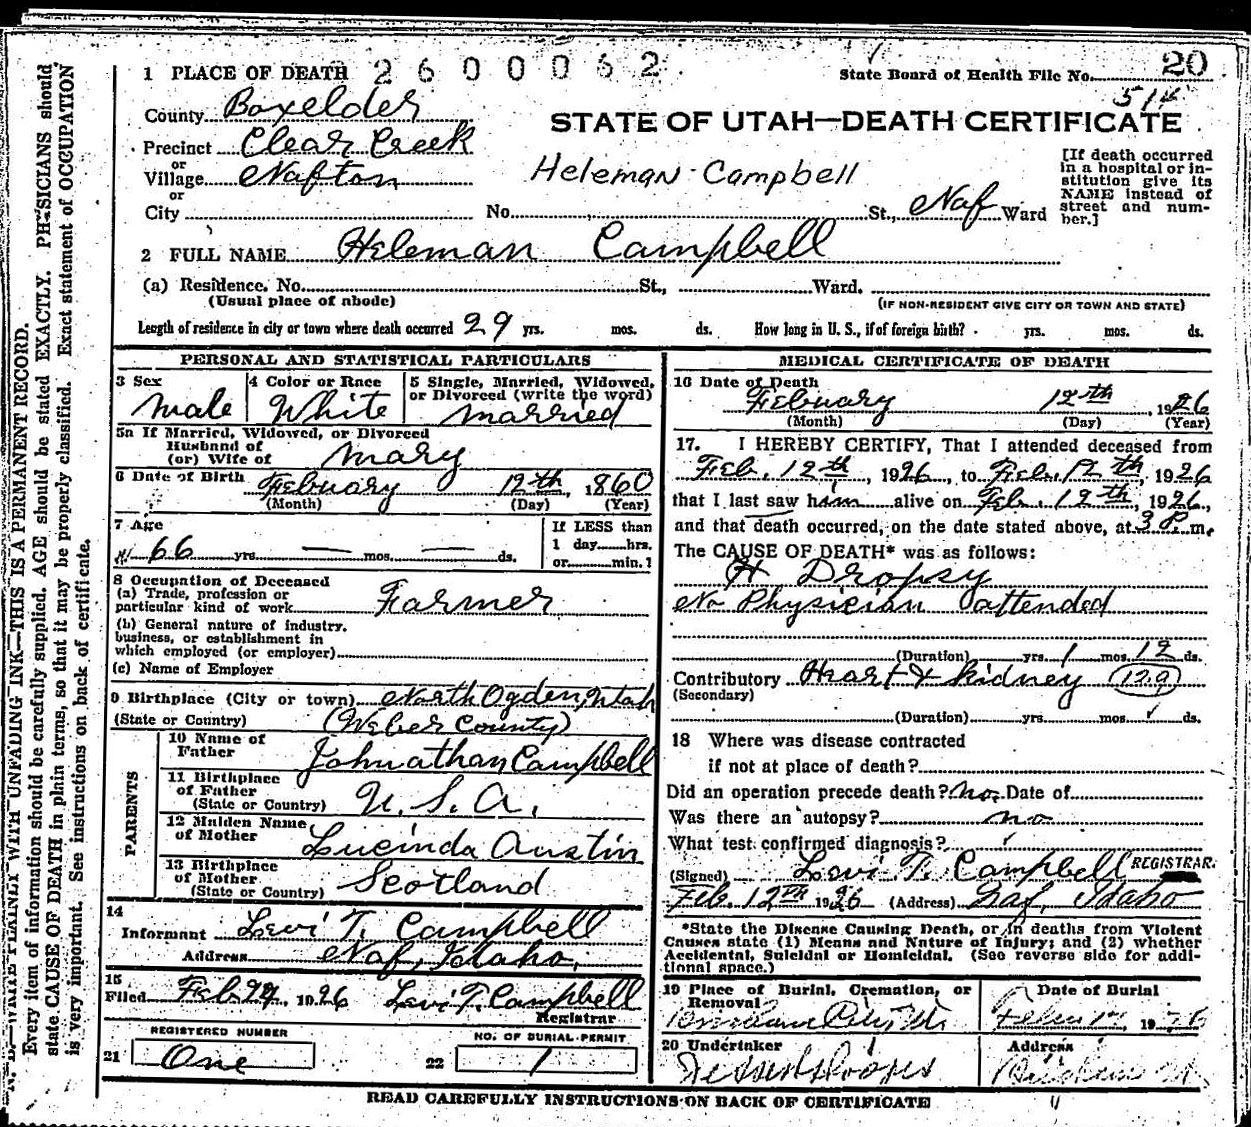 1 PLACE OF DEATH 2600062
State Board of Health File No. 20
County Boxelder
STATE OF UTAH—DEATH CERTIFICATE
Precinct Clear Creek
or
Village Nafton
Heleman Campbell
[If death occurred in a hospital or in-stitution give its NAME instead of street and num-ber.]
or
City No. St., Naf Ward
2 FULL NAME Heleman Campbell
(a) Residence. No. St., Ward.
(Usual place of abode) (IF NON-RESIDENT GIVE CITY OR TOWN AND STATE)
Length of residence in city or town where death occurred 29 yrs. mos. ds. How long in U. S., if of foreign birth? yrs. mos. ds.
PERSONAL AND STATISTICAL PARTICULARS
3 Sex 4 Color or Race 5 Single, Married, Widowed, or Divorced (write the word)
Male White Married
5a If Married, Widowed, or Divorced
Husband of
(or) Wife of Mary
6 Date of Birth February 12th, 1860
(Month) (Day) (Year)
7 Age If LESS than
66 yrs. — mos. — ds. 1 day hrs.
or min.?
8 Occupation of Deceased
(a) Trade, profession or
particular kind of work Farmer
(b) General nature of industry,
business, or establishment in
which employed (or employer)
(c) Name of Employer
9 Birthplace (City or town) North Ogden, Utah
(State or Country) (Weber County)
PARENTS
10 Name of
Father Johnathan Campbell
11 Birthplace
of Father
(State or Country) U. S. A.
12 Maiden Name
of Mother Lucinda Austin
13 Birthplace
of Mother
(State or Country) Scotland
14
Informant Levi T. Campbell
Address Naf, Idaho.
15
Filed Feb 1926 Levi T. Campbell
Registrar
REGISTERED NUMBER NO. OF BURIAL PERMIT
21 One 22 1
MEDICAL CERTIFICATE OF DEATH
16 Date of Death
February 12th, 1926
(Month) (Day) (Year)
17. I HEREBY CERTIFY, That I attended deceased from
Feb. 12th, 1926, to Feb. 12th, 1926
that I last saw him alive on Feb. 12th, 1926,
and that death occurred, on the date stated above, at 3 P. m.
The CAUSE OF DEATH* was as follows:
Dropsy
No Physician attended
(Duration) yrs. 1 mos. 12 ds.
Contributory Heart & kidney (129)
(Secondary)
(Duration) yrs. mos. ds.
18 Where was disease contracted
if not at place of death?
Did an operation precede death? no. Date of
Was there an autopsy? no
What test confirmed diagnosis?
(Signed) Levi T. Campbell REGISTRAR.
Feb. 12TH 1926 (Address) Naf, Idaho
*State the Disease Causing Death, or in deaths from Violent
Causes state (1) Means and Nature of Injury; and (2) whether
Accidental, Suicidal or Homicidal. (See reverse side for addi-
tional space.)
19 Place of Burial, Cremation, or Removal Date of Burial
1926
20 Undertaker Address
READ CAREFULLY INSTRUCTIONS ON BACK OF CERTIFICATE
WRITE PLAINLY WITH UNFADING INK—THIS IS A PERMANENT RECORD.
Every item of information should be carefully supplied. AGE should be stated EXACTLY. PHYSICIANS should
state CAUSE OF DEATH in plain terms, so that it may be properly classified. Exact statement of OCCUPATION
is very important. See instructions on back of certificate.